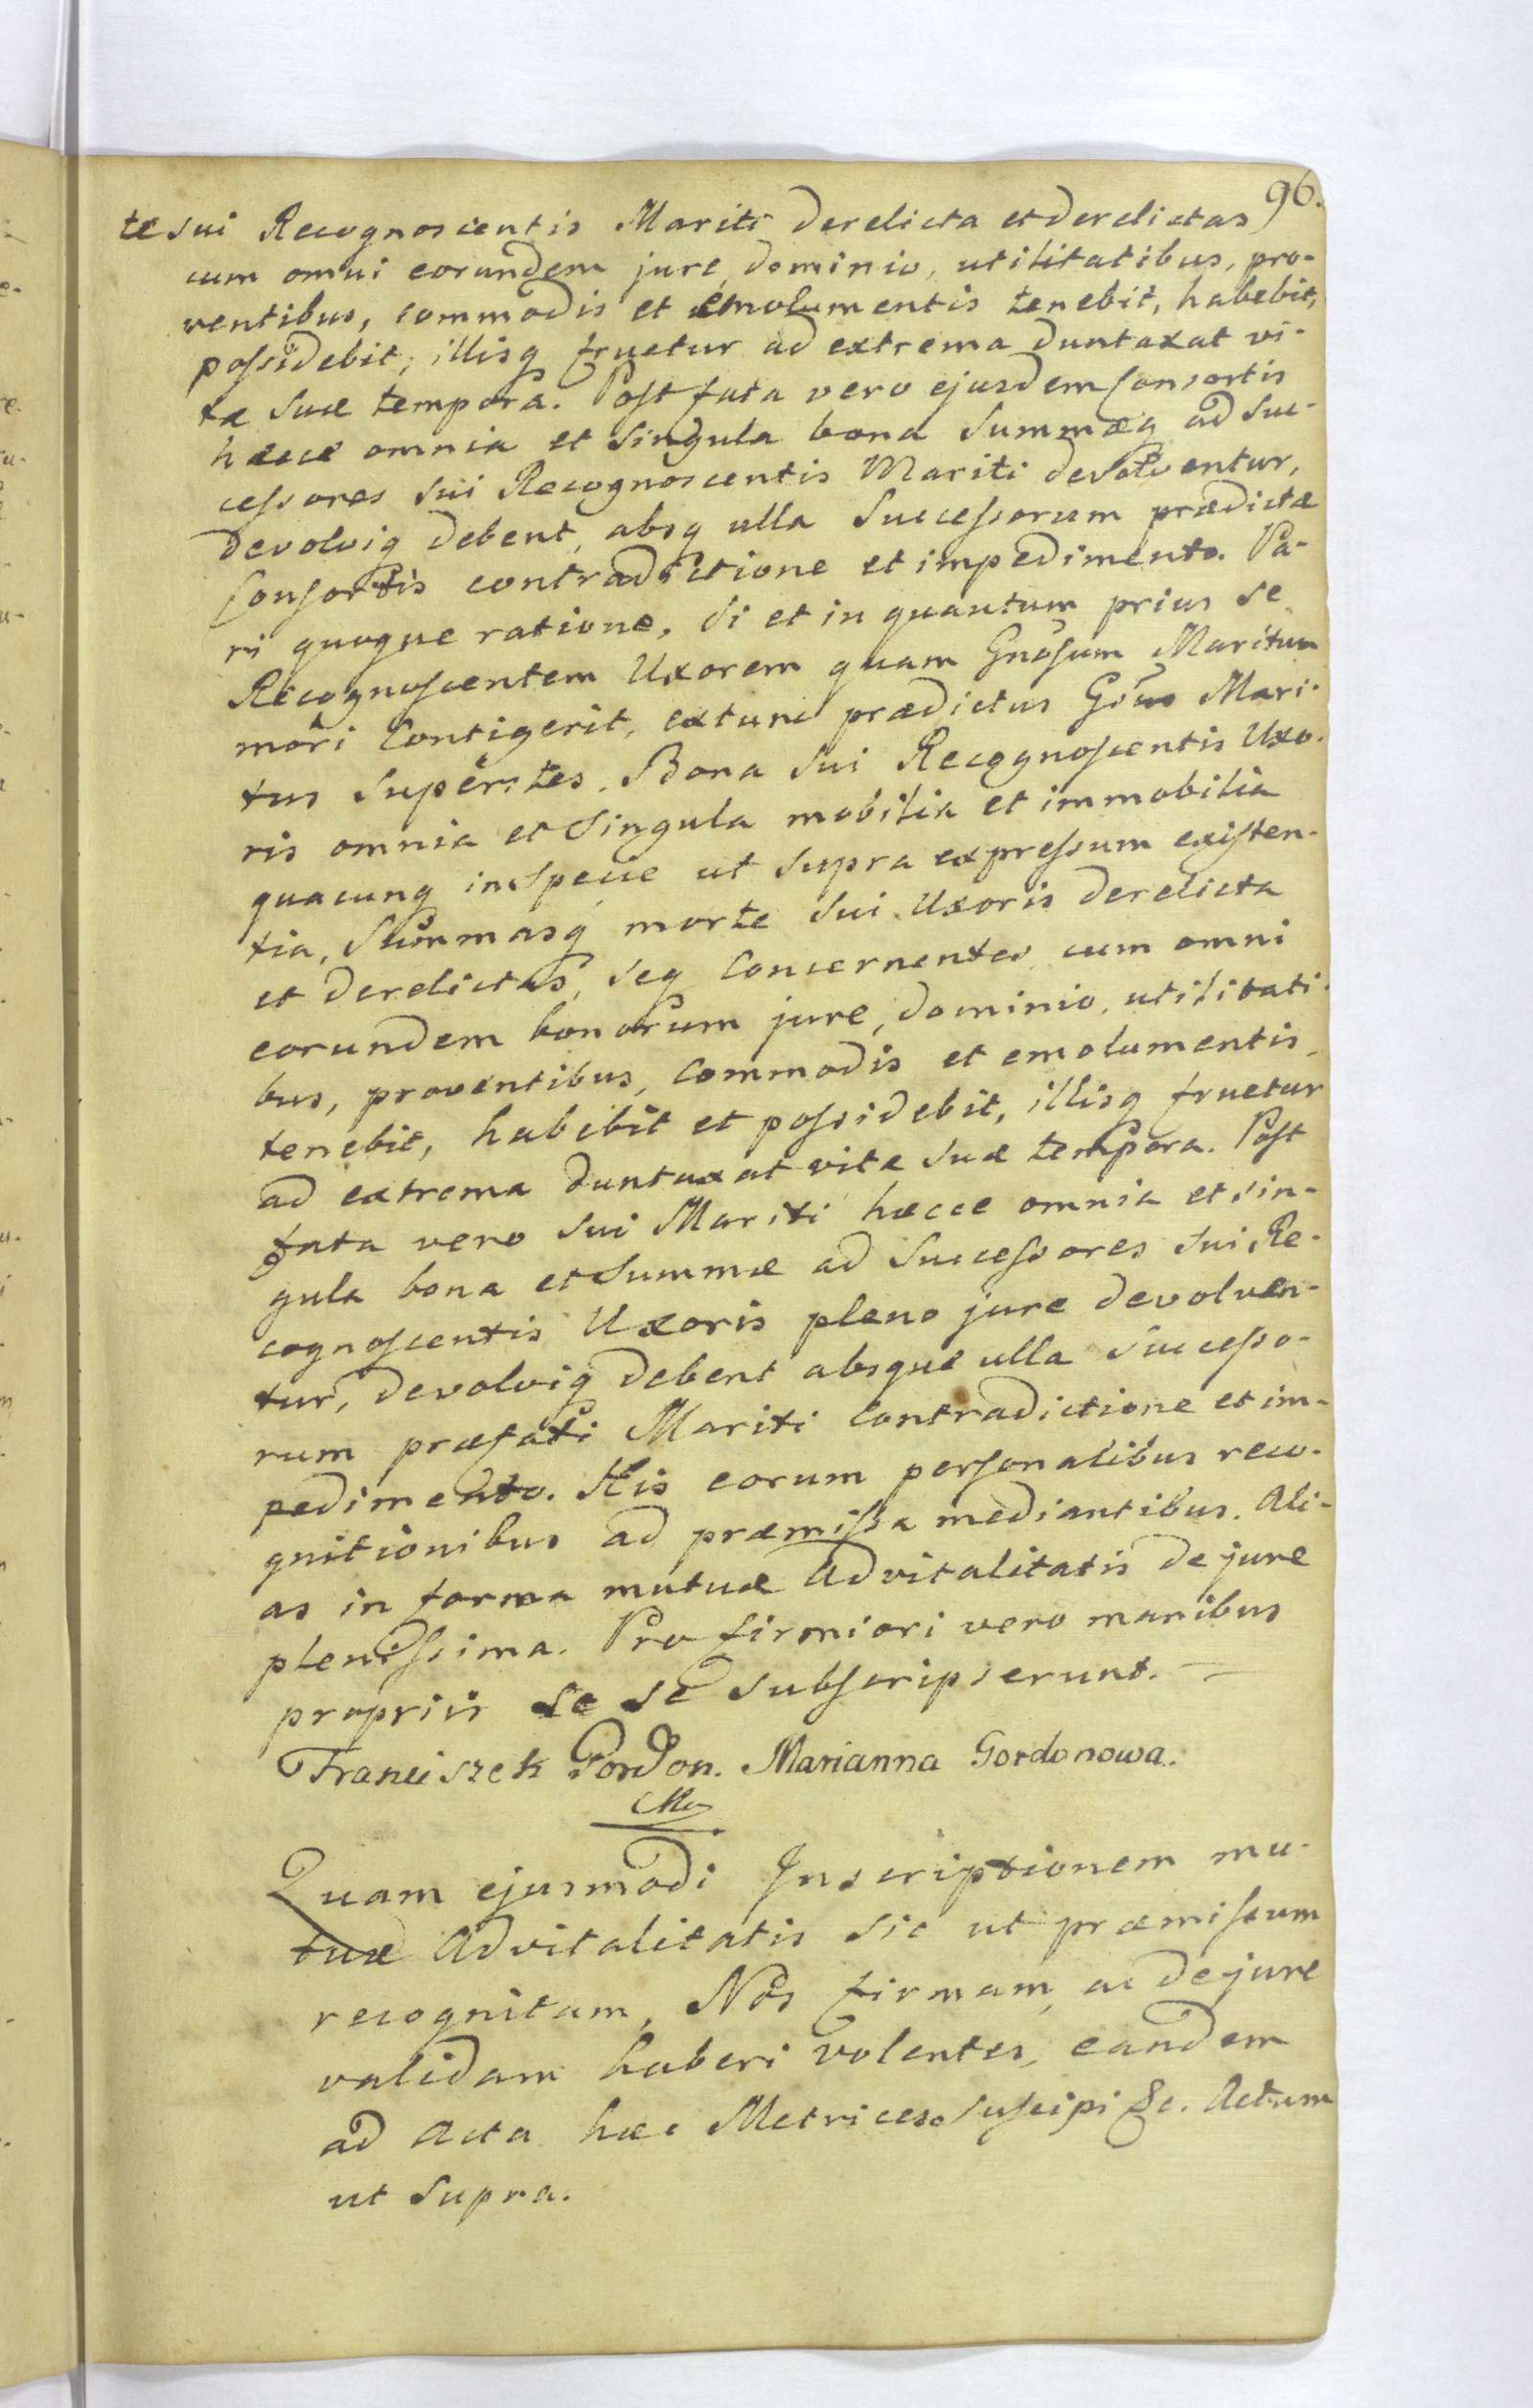 96.
te sui Recognoscentis Mariti derelicta et derelictas
cum omni eorundem jure, dominio, utilitatibus, pro-
ventibus, commodis et emolumentis tenebit, habebit,
possidebit; illisq fruetur ad extrema duntaxat vi-
tæ suæ tempora. Post fata vero ejusdem Consortis
hæcce omnia et singula bona summæq ad suc-
cessores sui Recognoscentis Mariti devolventur,
devolviq debent, absq ulla Successorum prædictæ
Consortis contradictione et impedimento. Pa-
ri quoque ratione, si et in quantum prius se
Recognoscentem Uxorem quam Gnosum Maritum
mori Contigerit, extunc prædictus Gsus Mari-
tus Superstes, Bona sui Recognoscentis Uxo-
ris omnia et Singula mobilia et immobilia
quacunq in Specie ut supra expressum existen-
tia, Summasq morte sui Uxoris derelicta
et derelictas, seq Concernentes cum omni
eorundem bonorum jure, dominio, utilitati-
bus, proventibus, Commodis et emolumentis,
tenebit, habebit et possidebit, illisq fruetur
ad extrema duntaxat vitæ suæ tempora. Post
fata vero sui Mariti hæcce omnia et sin-
gula bona et Summæ ad Successores sui Re-
cognoscentis Uxoris pleno jure devolven-
tur, devolviq debent absque ulla Successo-
rum præfati Mariti Contradictione et im-
pedimento. His eorum personalibus reco-
gnitionibus ad præmissa mediantibus. Ali-
as in forma mutuæ Advitalitatis de jure
plenissima. Pro firmiori vero manibus
propriis se se subscripserunt.
Franciszek Gordon. Marianna Gordonowa.
Quam ejusmodi Inscriptionem mu-
tuæ Advitalitatis sic ut præmissum
recognitam, Nos firmam, ac de jure
validam haberi volentes, eandem
ad Acta hæc Metrices. suscipi &c. Actum
ut supra.